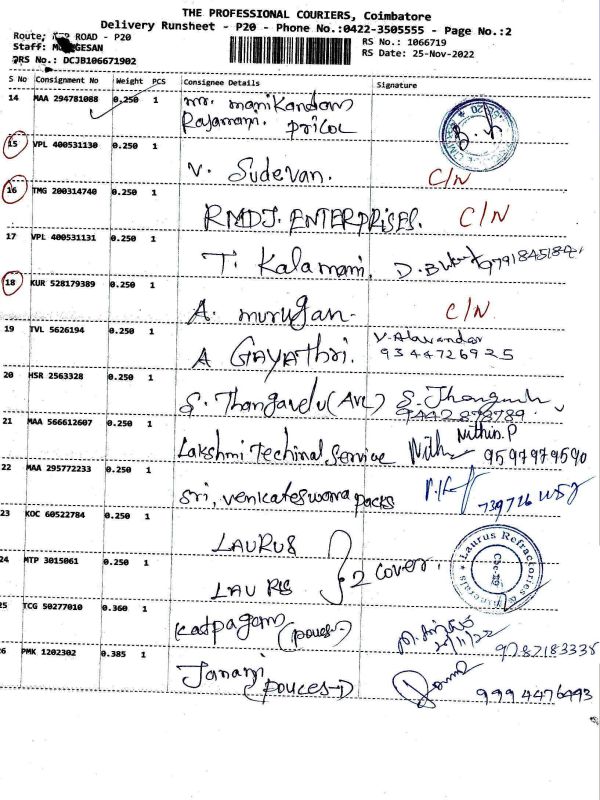 THE PROFESSIONAL COURIERS, Coimbatore
Delivery Runsheet - P20 - Phone No.:0422-3505555 - Page No.:2
Route: ROAD - P20
RS No.: 1066719
Staff:
RS Date: 25-Nov-2022
DRS No.: DCJB106671902
S No Consignment No Weight PCS Consignee Details Signature
14 MAA 294781088 0.250 1 Mr. Manikandan
Rajamani. Pricol
15 VPL 400531130 0.250 1
V. Sudevan. C/N
16 TMG 200314740 0.250 1
RMDJ. ENTERPRISES. C/N
17 VPL 400531131 0.250 1
T. Kalamani.
18 KUR 528179389 0.250 1
A. murugan. C/N
19 TVL 5626194 0.250 1
A GAYAThri. V. Alavandar
9344726925
20 HSR 2563328 0.250 1
S. Thangavelu (Avl)
21 MAA 566612607 0.250 1
Lakshmi Techinal Service Nithin.P
9597979590
22 MAA 295772233 0.250 1
Sri, Venkateswara packs
23 KOC 60522784 0.250 1
LAURUS
24 MTP 3015061 0.250 1 2 cover.
LAURUS
Laurus Refractories & Minerals
25 TCG 50277010 0.360 1
Katpagam
25/11/22
26 PMK 1202302 0.385 1
Janani
9994476493